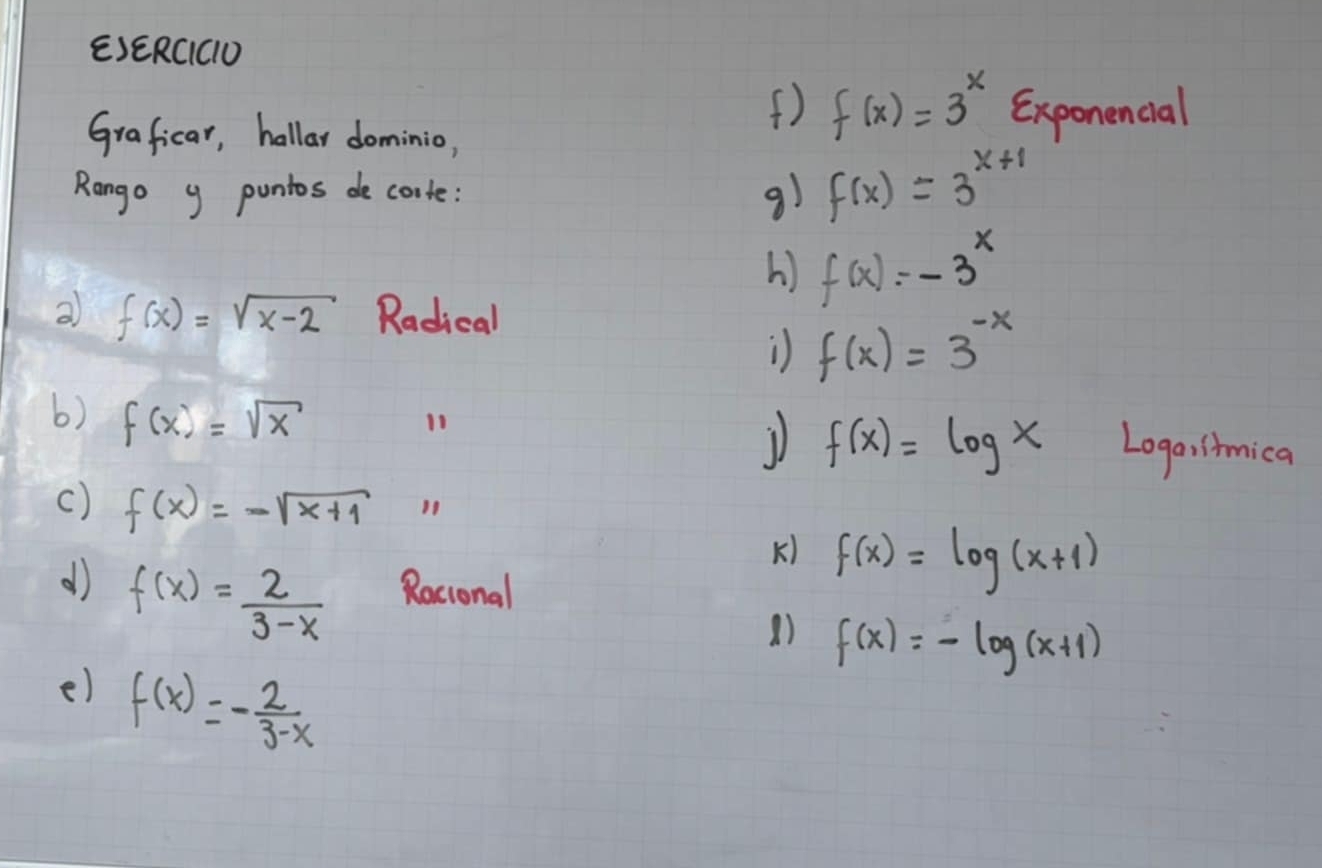 EJERCICIO
Graficar, hallar dominio,
Rango y puntos de corte:
a) f(x) = √(x-2) Radical
b) f(x) = √x "
c) f(x) = -√(x+1) "
d) f(x) = 2/(3-x) Racional
e) f(x) = -2/(3-x)
f) f(x) = 3^x Exponencial
g) f(x) = 3^(x+1)
h) f(x) = -3^x
i) f(x) = 3^(-x)
j) f(x) = log x Logarítmica
k) f(x) = log (x+1)
l) f(x) = - log (x+1)